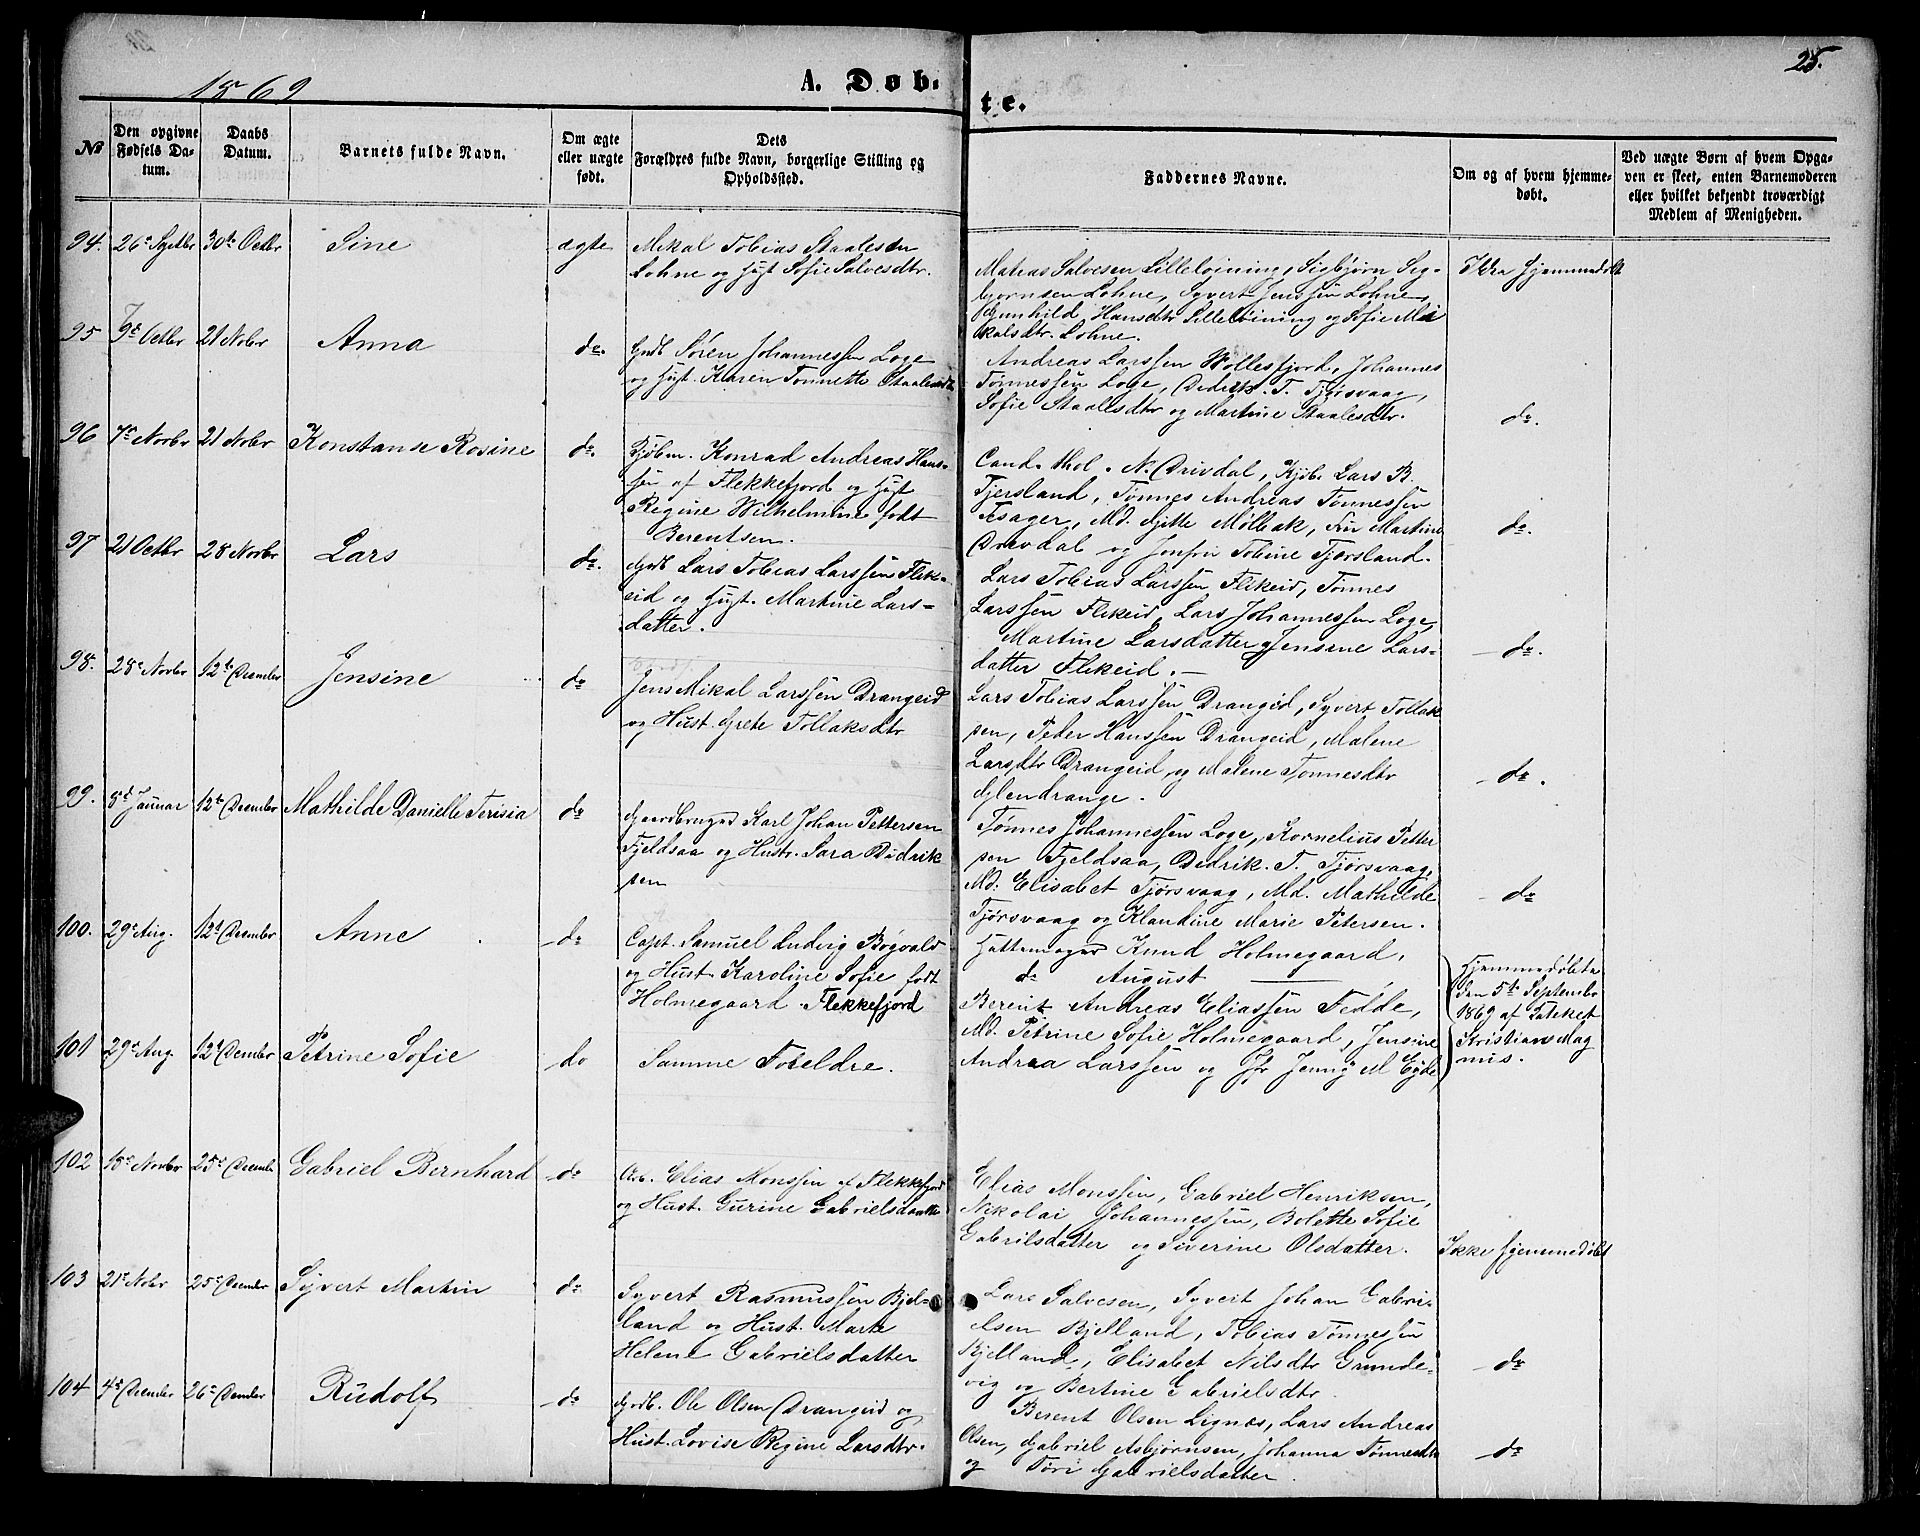 25.
1869
A. Døb-
te.
No
Den opgivne
Fødsels Da-
tum.
Daabs
Datum.
Barnets fulde Navn.
Om ægte
eller uægte
født.
Dets
Forældres fulde Navn, borgerlige Stilling og
Opholdssted.
Faddernes Navne.
Om og af hvem hjemme-
døbt.
Ved uægte Børn af hvem Opga-
ven er skeet, enten Barnemoderen
eller hvilket bekjendt troværdigt
Medlem af Menigheden.
94. 26 Septbr 30te Octbr Sine ægte
Mikal Tobias Staalesen
Lohne og Hust Sofie Salvesdtr.
Matias Salvesen Lilleløining, Sigbjørn Sig-
bjørnsen Lohne, Syvert Jenssen Lohne,
Gunhild Hansdtr Lilleløining og Sofie Mi
kalsdtr. Lohne.
Ikke hjemmedøbt
95 9de Octbr 21 Nobr Anna do.
Gdb Søren Johannessen Loge
og Hust. Karen Tonnette Staalesdtr
Andreas Larssen Wollesfjord, Johannes
Tønnessen Loge, Didrik T. Tjørsvaag,
Sofie Staalesdtr og Martine Staalesdtr.
do.
96 7de Novbr 21 Nobr Konstanse Rosine do.
Kjøbm. Konrad Andreas Hans-
sen af Flekkefjord og Hust
Regine Wilhelmine født
Berentsen.
Cand. thol. N. Drivdal, Kjøb. Lars B.
Tjersland, Tønnes Andreas Tønnessen
Tesager, Md. Gitte Mølbak, Fru Martine
Drivdal og Jomfru Tobine Tjørsland.
do.
97 21 Octbr 28 Novbr Lars do.
Gdb Lars Tobias Larssen Flik-
eid og Hust. Martine Lars-
datter.
Lars Tobias Larssen Flikeid, Tønnes
Larssen Flikeid, Lars Johannessen Loge,
Martine Larsdatter og Jensine Lars-
datter Flikeid.
do.
98. 28 Novbr 12te December Jensine do
Jens Mikal Larssen Drangeid
og Hust. Grete Tollaksdtr
Lars Tobias Larssen Drangid, Syvert Tollak
sen, Peder Hanssen Drangeid, Malene
Larsdtr Drangeid og Malene Tønnesdtr
Glendrange.
do.
99. 5d Januar 12te December Mathilde Danielle Terisia do
Gaardbruger Karl Johan Pettersen
Fjeldsaa og Hustr. Sara Didrik
sen
Tønnes Johannessen Loge, Kornelius Petter
sen Fjeldsaa, Didrik. T. Tjørsvaag,
Md. Elisabet Tjørsvaag, Md. Mathilde
Tjørsvaag og Klaudine Marie Petersen.
do
100. 29 Aug. 12t December Anne do
Capt. Samuel Ludvig Bøgvald
og Hust. Karoline Sofie født
Holmegaard Flekkefjord
Hattemager Knud Holmegaard,
do August
Berent Andreas Eliassen Fedde,
Md. Petrine Sofie Holmegaard, Jensine
Andrea Larssen og Jfr Jenny M Eyde
Hjemmedøbte
den 5te Septembr
1869 af
Kristians Mag
nus.
101 29 Aug. 12t December Petrine Sofie do
Samme Foreldre.
102 18 Novbr 25 Decembr Gabriel Bernhard do
Arb. Elias Monssen af Flekkefjord
og Hust. Gurine Gabrielsdatter
Elias Monssen, Gabriel Henriksen,
Nikolai Johannessen, Bolette Sofie
Gabrilsdatter og Siverine Olsdatter.
Ikke hjemmedøbt
103 21 Nobr 25 December Syvert Martin do
Syvert Rasmussen Bjel-
land og Hust. Marte
Helene Gabrielsdatter
Lars Salvesen, Syvert Johan Gabri-
elsen Bjelland, Tobias Tønnessen
Bjelland, Elisabet Nilsdtr Grunde-
vig og Bertine Gabrielsdtr.
do
104 4de December 26 December Rudolf do
Gdb. Ole Olsen Drangeid og
Hust. Lovise Regine Larsdtr.
Berent Olsen Lignæs, Lars Andreas
Olsen, Gabriel Asbjørnsen, Johanna Tønnesdtr
og Tøri Gabrielsdatter.
do